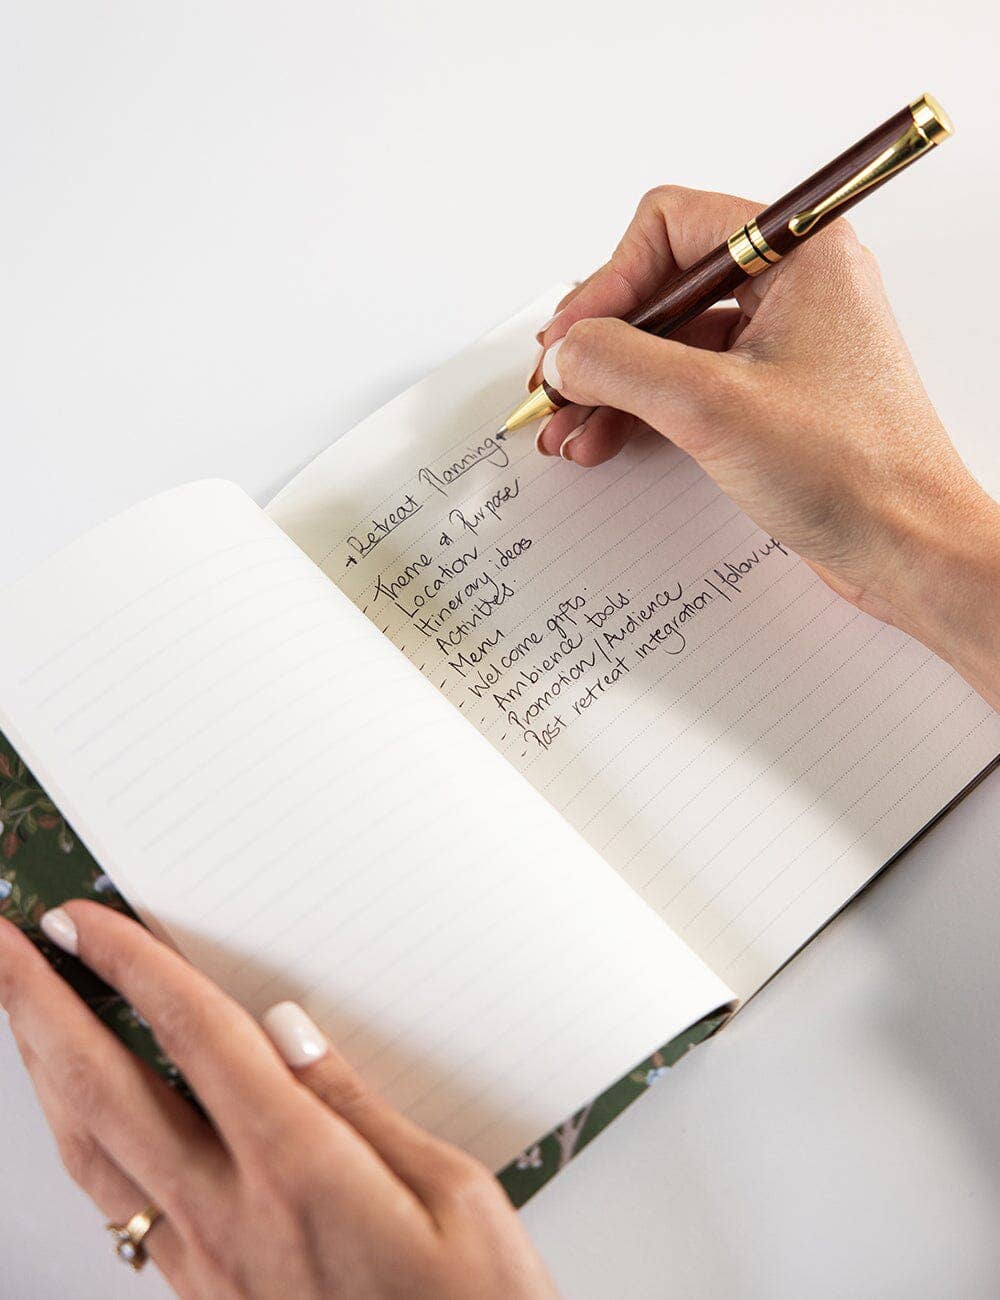 * Retreat Planning *
- Theme & Purpose
- Location
- Itinerary ideas
- Activities
- Menu
- Welcome gifts
- Ambience tools
- Promotion / Audience
- Post retreat integration / follow up